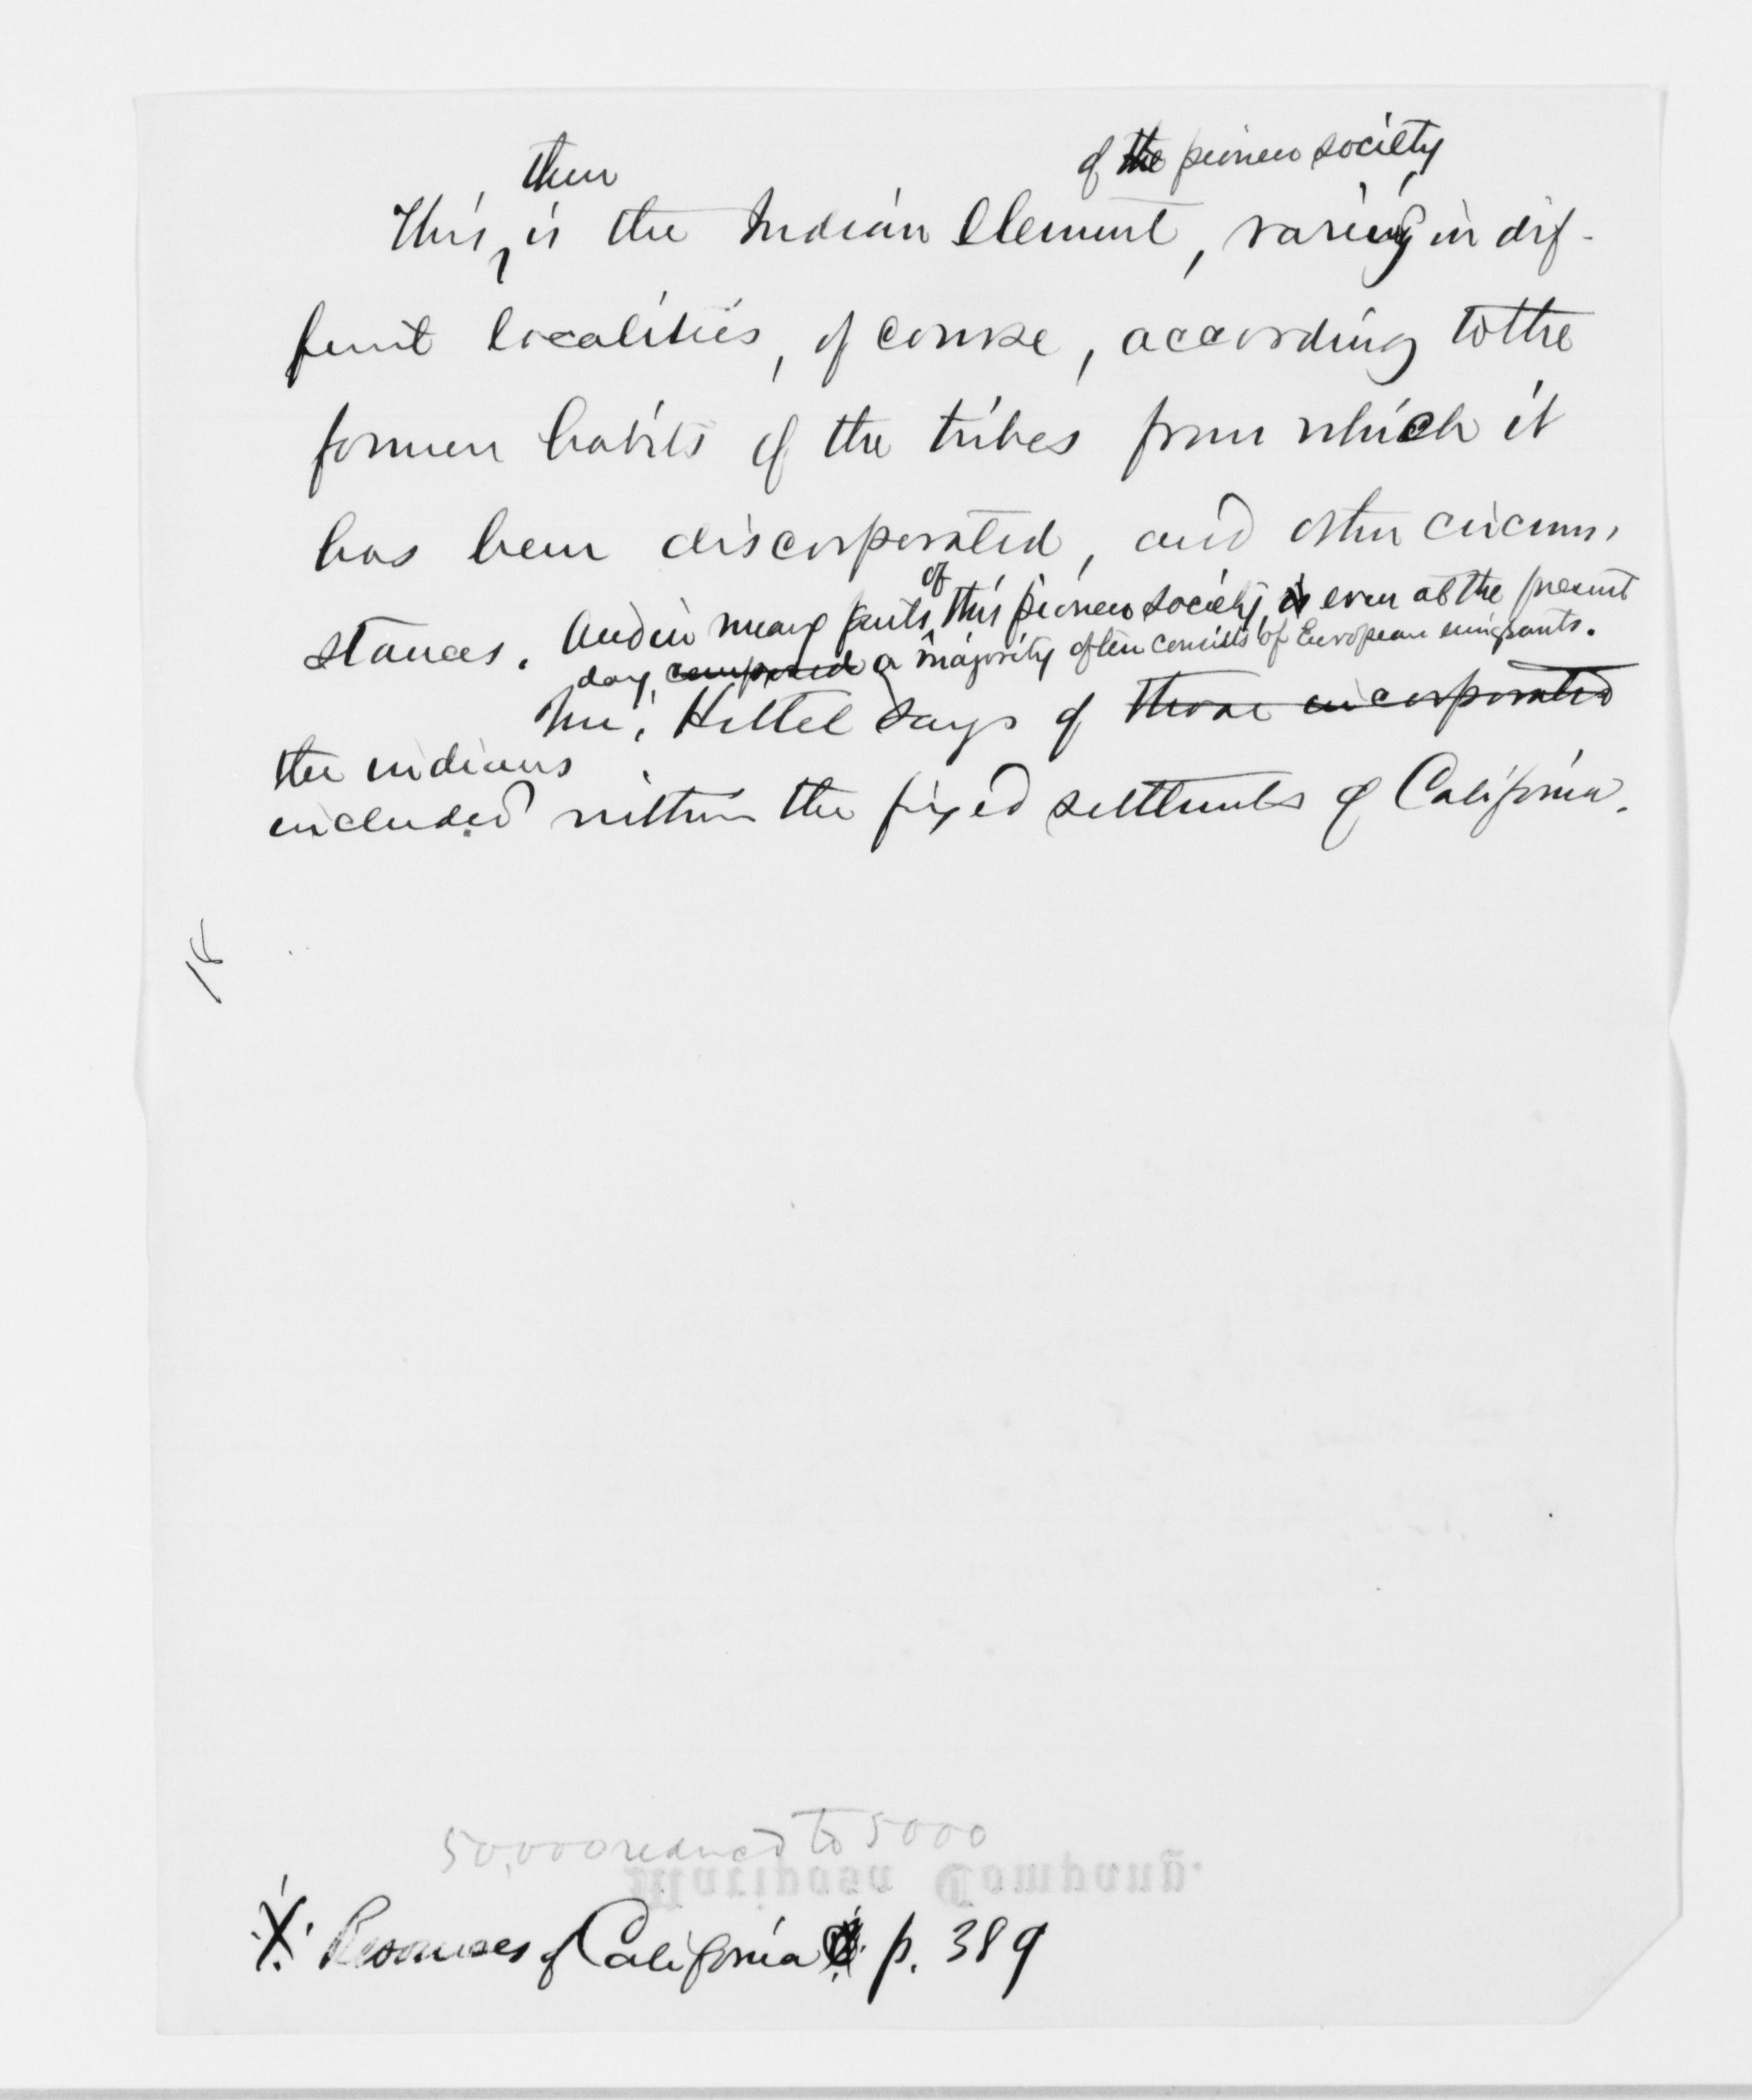 then
of the pioneer society
This, is the Indian Element, varieing in dif-
ferent localities, of course, according to the
former habits of the tribes from which it
has been discorporated, and other circum-
of
stances. And in many parts this pioneer society, is even at the present
day, composed a majority often consists of European emigrants.
Mr. Hittel says of those incorporated
the indians
included within the fixed settlements of California.
18
50,000 reduced to 5000
Mariposa Company.
X Resources of California p. 389